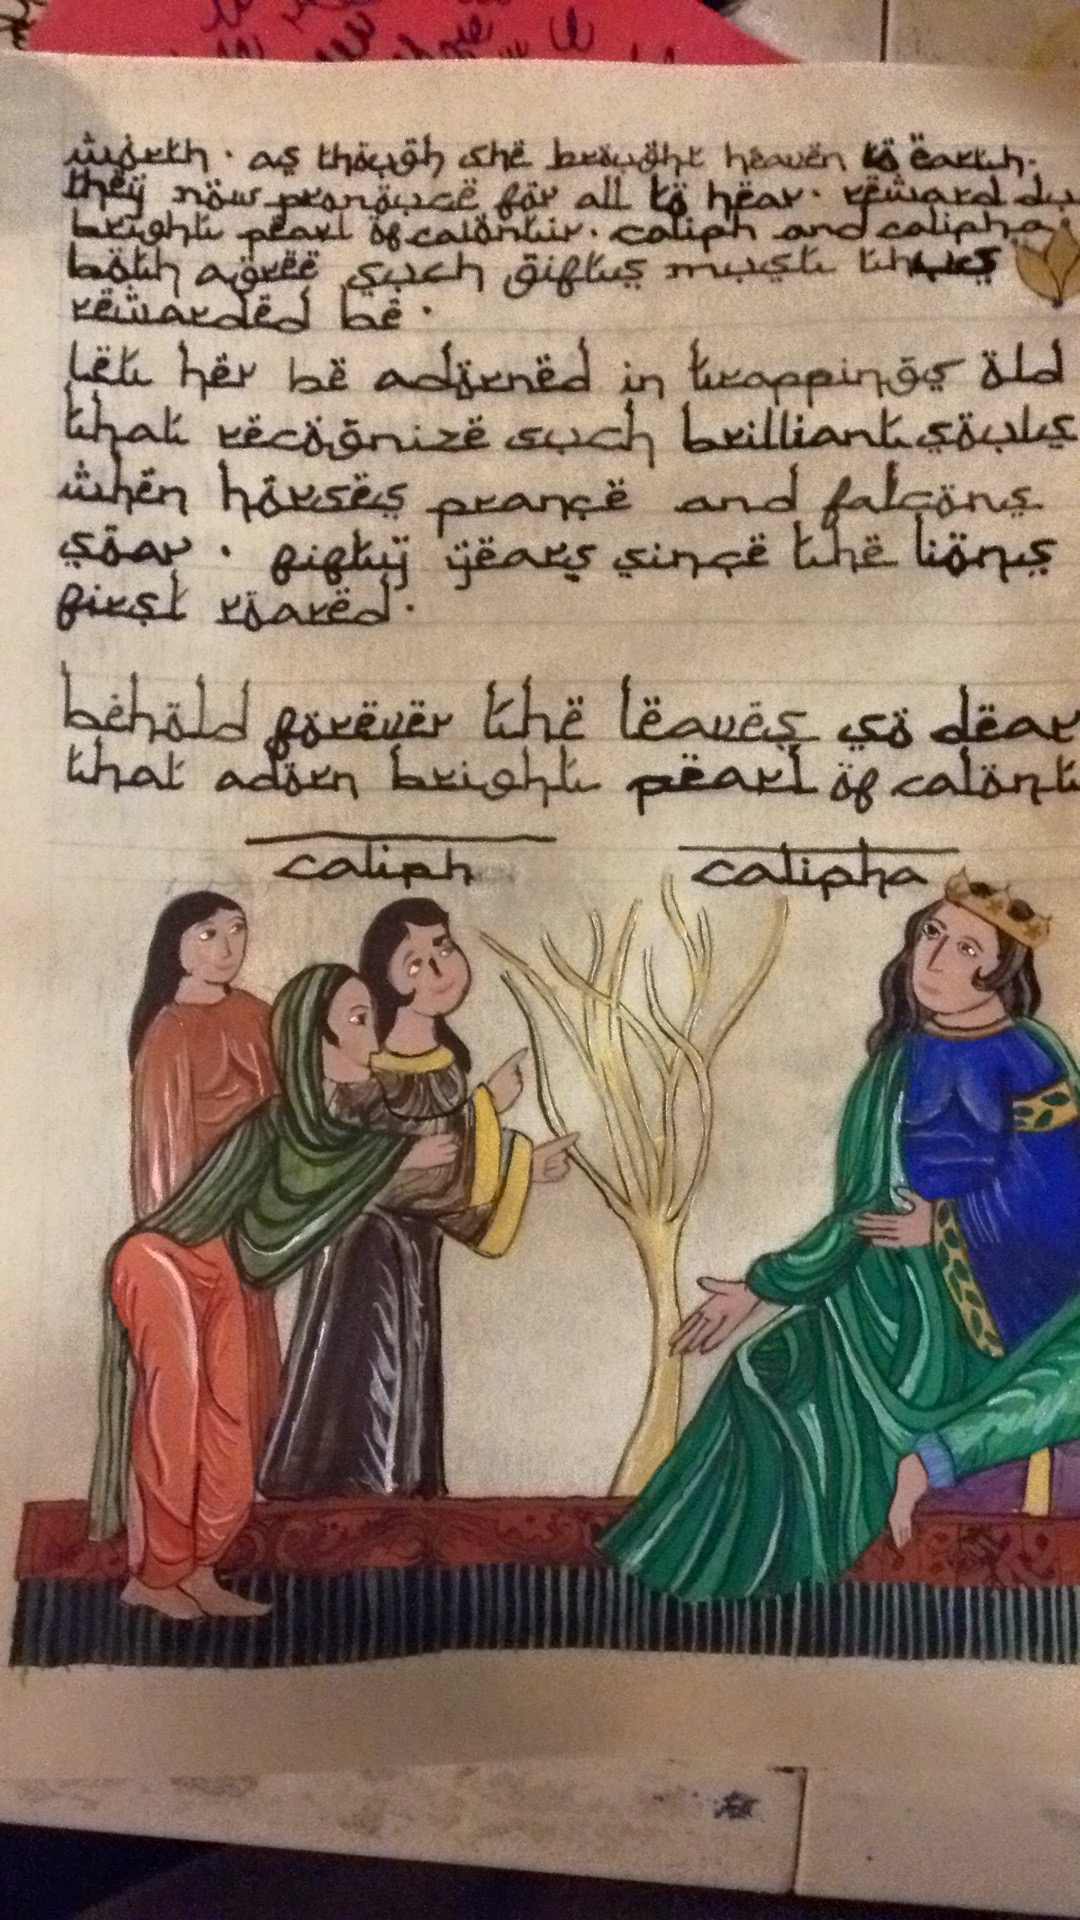 worth · as though she brought heaven to earth ·
they now pronounce for all to hear · reward
bright pearl of calontir · caliph and calipha
both agree such giftys must thus
rewarded be ·
let her be adorned in trappings old
that recognize such brilliant souls
when horses prance and falcons
soar · fifty years since the lions
first roared ·
behold forever the leaves so dear
that adorn bright pearl of
caliph calipha